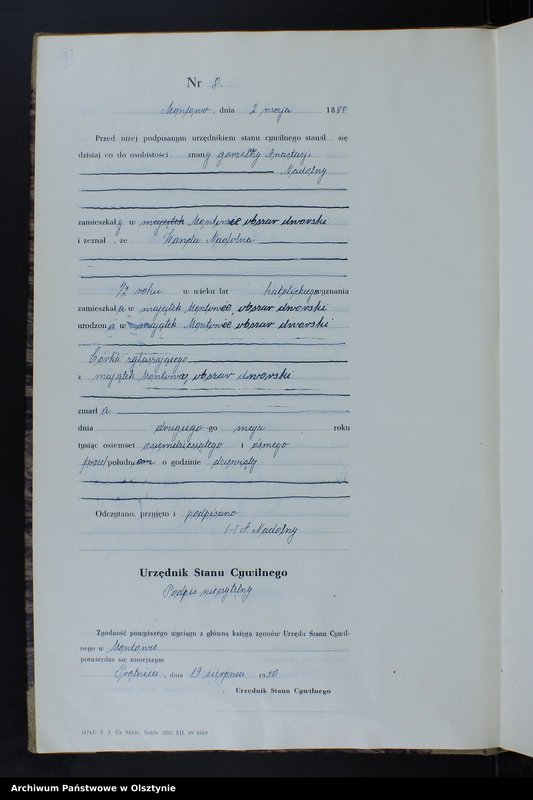 Nr 8.
Montowo, dnia 2 maja 1888
Przed niżej podpisanym urzędnikiem stanu cywilnego stawił się
dzisiaj co do osobistości znany Anastazji
Nadolny
zamieszkały w majątek Montowo obszar dworski
i zeznał, że Wanda Nadolna
1/2 roku w wieku lat katolickiego wyznania
zamieszkała w majątek Montowo, obszar dworski
urodzona w majątek Montowo obszar dworski
Córka zgłaszającego
z majątek Montowo, obszar dworski
zmarła
dnia drugiego -go maja roku
tysiąc osiemset osiemdziesiątego i ósmego
przed południem o godzinie dziewiątej
Odczytano, przyjęto i podpisano
(-) A. Nadolny
Urzędnik Stanu Cywilnego
Podpis nieczytelny
Zgodność powyższego wyciągu z główną księgą zgonów Urzędu Stanu Cywil-
nego w Montowie
potwierdza się niniejszym
Prątnica, dnia 19 sierpnia 1950
Urzędnik Stanu Cywilnego
(1742) T. Z. Gr. Oddz. Nakło 2202 XII. 49 4669
Archiwum Państwowe w Olsztynie